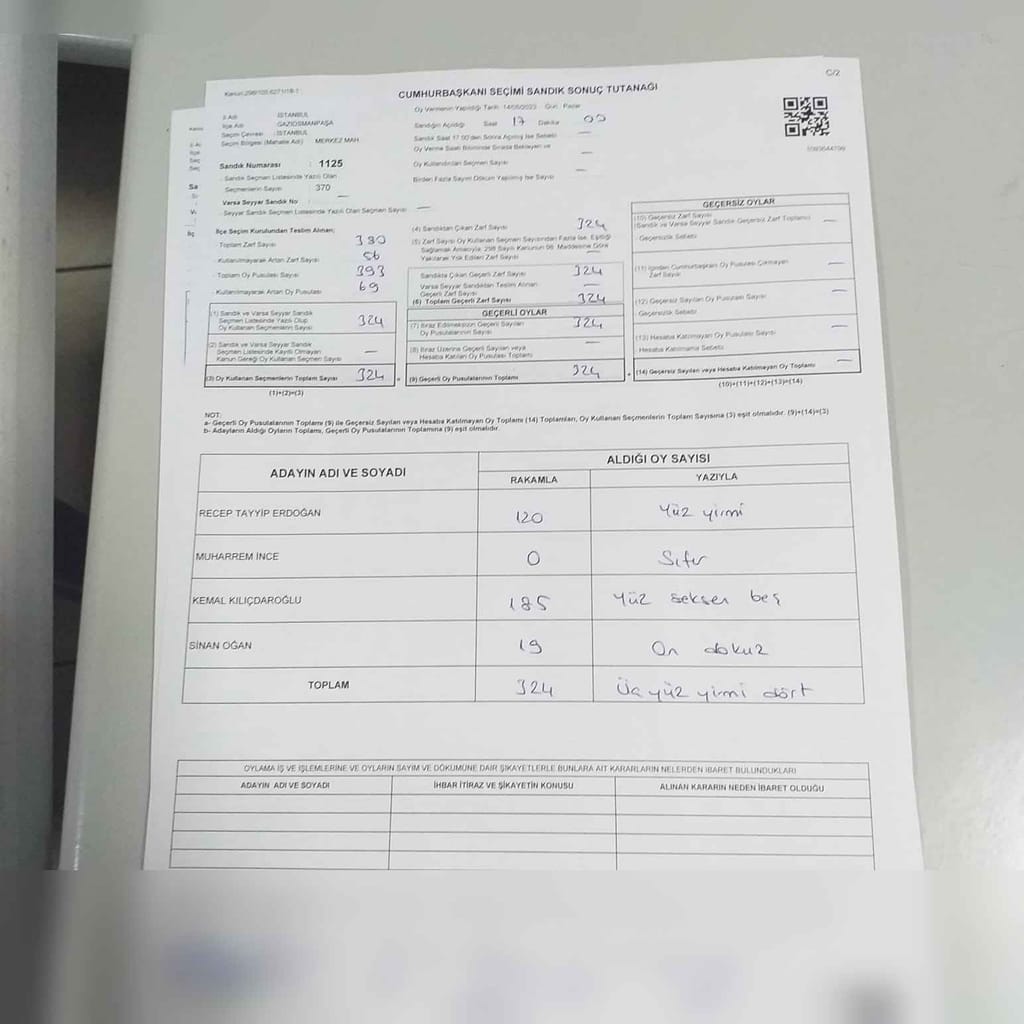 C/2
CUMHURBAŞKANI SEÇİMİ SANDIK SONUÇ TUTANAĞI
Oy Vermenin Yapıldığı Tarih: 14/05/2023 Gün: Pazar
İl Adı : İSTANBUL
İlçe Adı : GAZİOSMANPAŞA
Seçim Çevresi : İSTANBUL
Seçim Bölgesi (Mahalle Adı) : MERKEZ MAH.
Sandığın Açıldığı Saat 17 Dakika 00
Sandık Saat 17:00'den Sonra Açılmış İse Sebebi —
Oy Verme Saati Bitiminde Sırada Bekleyen ve
Oy Kullandırılan Seçmen Sayısı —
Birden Fazla Sayım Döküm Yapılmış İse Sayısı —
Sandık Numarası : 1125
Sandık Seçmen Listesinde Yazılı Olan
Seçmenlerin Sayısı : 370
Varsa Seyyar Sandık No : —
Seyyar Sandık Seçmen Listesinde Yazılı Olan Seçmen Sayısı —
İlçe Seçim Kurulundan Teslim Alınan;
Toplam Zarf Sayısı 380
Kullanılmayarak Artan Zarf Sayısı 56
Toplam Oy Pusulası Sayısı 393
Kullanılmayarak Artan Oy Pusulası 69
(1) Sandık ve Varsa Seyyar Sandık
Seçmen Listesinde Yazılı Olup
Oy Kullanan Seçmenlerin Sayısı 324
(2) Sandık ve Varsa Seyyar Sandık
Seçmen Listesinde Kayıtlı Olmayan
Kanun Gereği Oy Kullanan Seçmen Sayısı —
(3) Oy Kullanan Seçmenlerin Toplam Sayısı 324
(1)+(2)=(3)
(4) Sandıktan Çıkan Zarf Sayısı 324
(5) Zarf Sayısı Oy Kullanan Seçmen Sayısından Fazla İse, Eşitliği
Sağlamak Amacıyla, 298 Sayılı Kanunun 98. Maddesine Göre
Yakılarak Yok Edilen Zarf Sayısı —
Sandıkta Çıkan Geçerli Zarf Sayısı 324
Varsa Seyyar Sandıktan Teslim Alınan
Geçerli Zarf Sayısı —
(6) Toplam Geçerli Zarf Sayısı 324
GEÇERLİ OYLAR
(7) İtiraz Edilmeksizin Geçerli Sayılan
Oy Pusulalarının Sayısı 324
(8) İtiraz Üzerine Geçerli Sayılan veya
Hesaba Katılan Oy Pusulası Toplamı —
(9) Geçerli Oy Pusulalarının Toplamı 324
GEÇERSİZ OYLAR
(10) Geçersiz Zarf Sayısı
(Sandık ve Varsa Seyyar Sandık Geçersiz Zarf Toplamı) —
Geçersizlik Sebebi:
(11) İçinden Cumhurbaşkanı Oy Pusulası Çıkmayan
Zarf Sayısı —
(12) Geçersiz Sayılan Oy Pusulası Sayısı —
Geçersizlik Sebebi:
(13) Hesaba Katılmayan Oy Pusulası Sayısı —
Hesaba Katılmama Sebebi:
(14) Geçersiz Sayılan veya Hesaba Katılmayan Oy Toplamı —
(10)+(11)+(12)+(13)=(14)
NOT:
a- Geçerli Oy Pusulalarının Toplamı (9) ile Geçersiz Sayılan veya Hesaba Katılmayan Oy Toplamı (14) Toplamları, Oy Kullanan Seçmenlerin Toplam Sayısına (3) eşit olmalıdır. (9)+(14)=(3)
b- Adayların Aldığı Oyların Toplamı, Geçerli Oy Pusulalarının Toplamına (9) eşit olmalıdır.
ADAYIN ADI VE SOYADI ALDIĞI OY SAYISI
RAKAMLA YAZIYLA
RECEP TAYYİP ERDOĞAN 120 Yüz yirmi
MUHARREM İNCE 0 Sıfır
KEMAL KILIÇDAROĞLU 185 Yüz seksen beş
SİNAN OĞAN 19 On dokuz
TOPLAM 324 Üç yüz yirmi dört
OYLAMA İŞ VE İŞLEMLERİNE VE OYLARIN SAYIM VE DÖKÜMÜNE DAİR ŞİKAYETLERLE BUNLARA AİT KARARLARIN NELERDEN İBARET BULUNDUKLARI
ADAYIN ADI VE SOYADI İHBAR İTİRAZ VE ŞİKAYETİN KONUSU ALINAN KARARIN NEDEN İBARET OLDUĞU